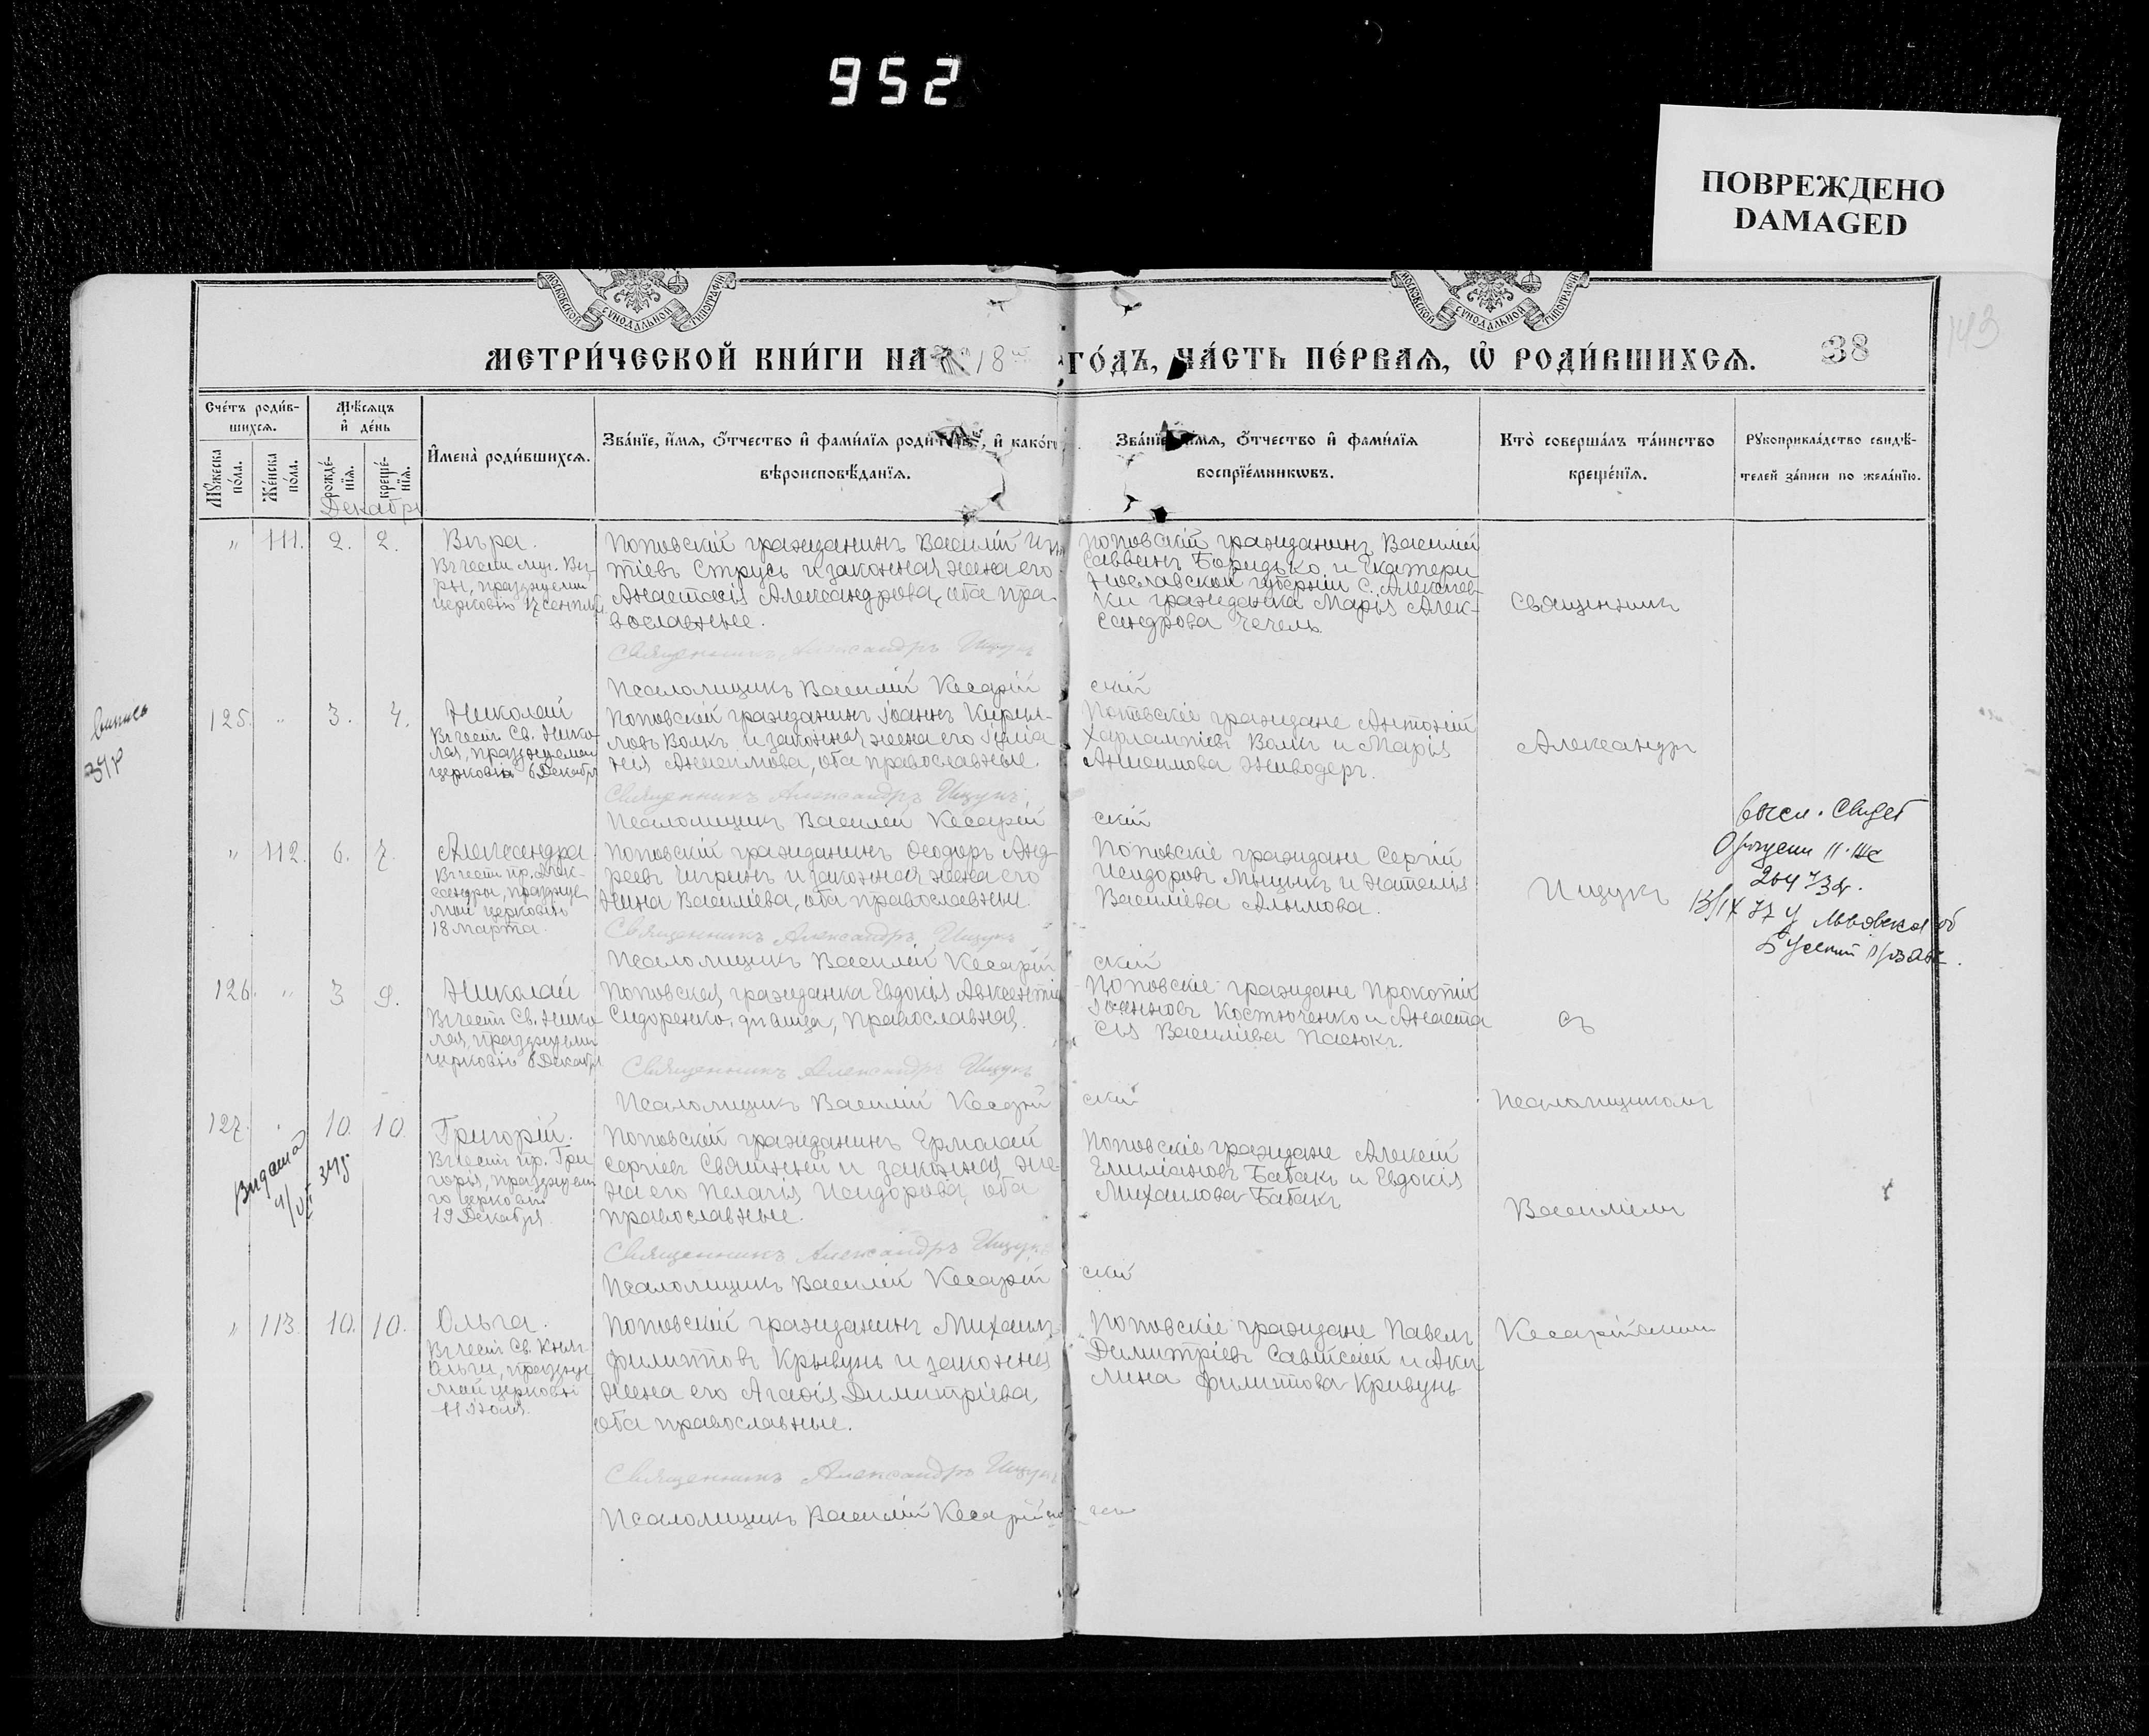 952
ПОВРЕЖДЕНО
DAMAGED
МОСКОВСКОЙ СѴНОДАЛЬНОЙ ТИПОГРАФІИ
МОСКОВСКОЙ СѴНОДАЛЬНОЙ ТИПОГРАФІИ
МЕТРИ́ЧЕСКОЙ КНИ́ГИ НА 18 ГО́ДЪ, ЧА́СТЬ ПЕ́РВАѦ, Ѽ РОДИ́ВШИХСѦ.
38
143
Сче́тъ роди́вшихсѧ.
Мѣ́сѧцъ и҆ де́нь
Мꙋ́жеска по́ла.
Же́нска по́ла.
рожде́нїѧ.
креще́нїѧ.
И҆мена̀ роди́вшихсѧ.
Зва́нїе, и҆́мѧ, ѻ҆́тчество и҆ фами́лїѧ роди́телей, и҆ како́гѡ
вѣроисповѣ́данїѧ.
Зва́нїе, и҆́мѧ, ѻ҆́тчество и҆ фами́лїѧ
воспрїе́мникѡвъ.
Кто̀ соверша́лъ та́инство
креще́нїѧ.
Рꙋкоприкла́дство свидѣ́-
телей за́писи по жела́нїю.
Декабрь
" 111. 2. 2.
Вѣра.
Въ честь муч. Вѣ-
ры, празднуемой
церковію 17 сентяб.
Поповскій гражданинъ Василій
тіевъ Струсь и законная жена его
Анастасія Александрова, оба пра-
вославные.
Поповскій гражданинъ Василій
Саввинъ Боридько и Екатери
нославской губерніи С. Алексѣев-
ки гражданка Марія Алек-
сандрова Чечель.
Священникъ
Священникъ Александръ Ищукъ
Псаломщикъ Василій Кесарійскій
125. " 3. 4.
Николай
Въ честь Св. Нико-
лая, празднуемой
церковію 6 Декабря
Поповскій гражданинъ Іоаннъ Кирил-
ловъ Волкъ и законная жена его Іуліа
нія Анисимова, оба православные.
Поповскіе граждане Антоній
Харлампіевъ Волкъ и Марія
Анисимова Живодеръ.
Александръ
Священникъ Александръ Ищукъ
Псаломщикъ Василій Кесарійскій
" 112. 6. 7.
Александра
Въ честь пр. Алек-
сандры, праздnуе
мой церковію
18 марта.
Поповскій гражданинъ Ѳеодоръ Анд-
реевъ Чигринъ и законная жена его
Нина Василіева, оба православные.
Поповскіе граждане Сергій
Исидоровъ Мыцыкъ и Наталія
Василіева Алимова.
Ищукъ
Священникъ Александръ Ищукъ
Псаломщикъ Василій Кесарійскій
126. " 3 9.
Николай
Въ честь Св. Нико-
лая, празднуемой
церковію 6 Декабря
Поповская гражданка Евдокія Авксентіева
Сидоренко, дѣвица, православная.
Поповскіе граждане Прокопій
Іоанновъ Костюченко и Анаста
сія Василіева Пасюкъ.
съ
Священникъ Александръ Ищукъ
Псаломщикъ Василій Кесарійскій
псаломщикомъ
127. 10. 10.
Григорій.
Въ честь пр. Гри
горія, празднуема
го церковію
19 Декабря
Поповскій гражданинъ Ермолай
Сергіевъ Святный и законная же-
на его Пелагія Исидорова, оба
православные.
Поповскіе граждане Алексій
Емиліановъ Бабакъ и Евдокія
Михаилова Бабакъ
Василіемъ
Священникъ Александръ Ищукъ
Псаломщикъ Василій Кесарійскій
" 113. 10. 10.
Ольга.
Въ честь Св. Княг.
Ольги, празднуе
мой церковію
11 Іюля.
Поповскій гражданинъ Михаилъ
Филипповъ Кривунь и законная
жена его Агаѳія Димитріева,
оба православные.
Поповскіе граждане Павелъ
Димитріевъ Савитскій и Аки
лина Филиппова Кривунь
Кесарійскимъ
Священникъ Александръ Ищукъ
Псаломщикъ Василій Кесарійскій